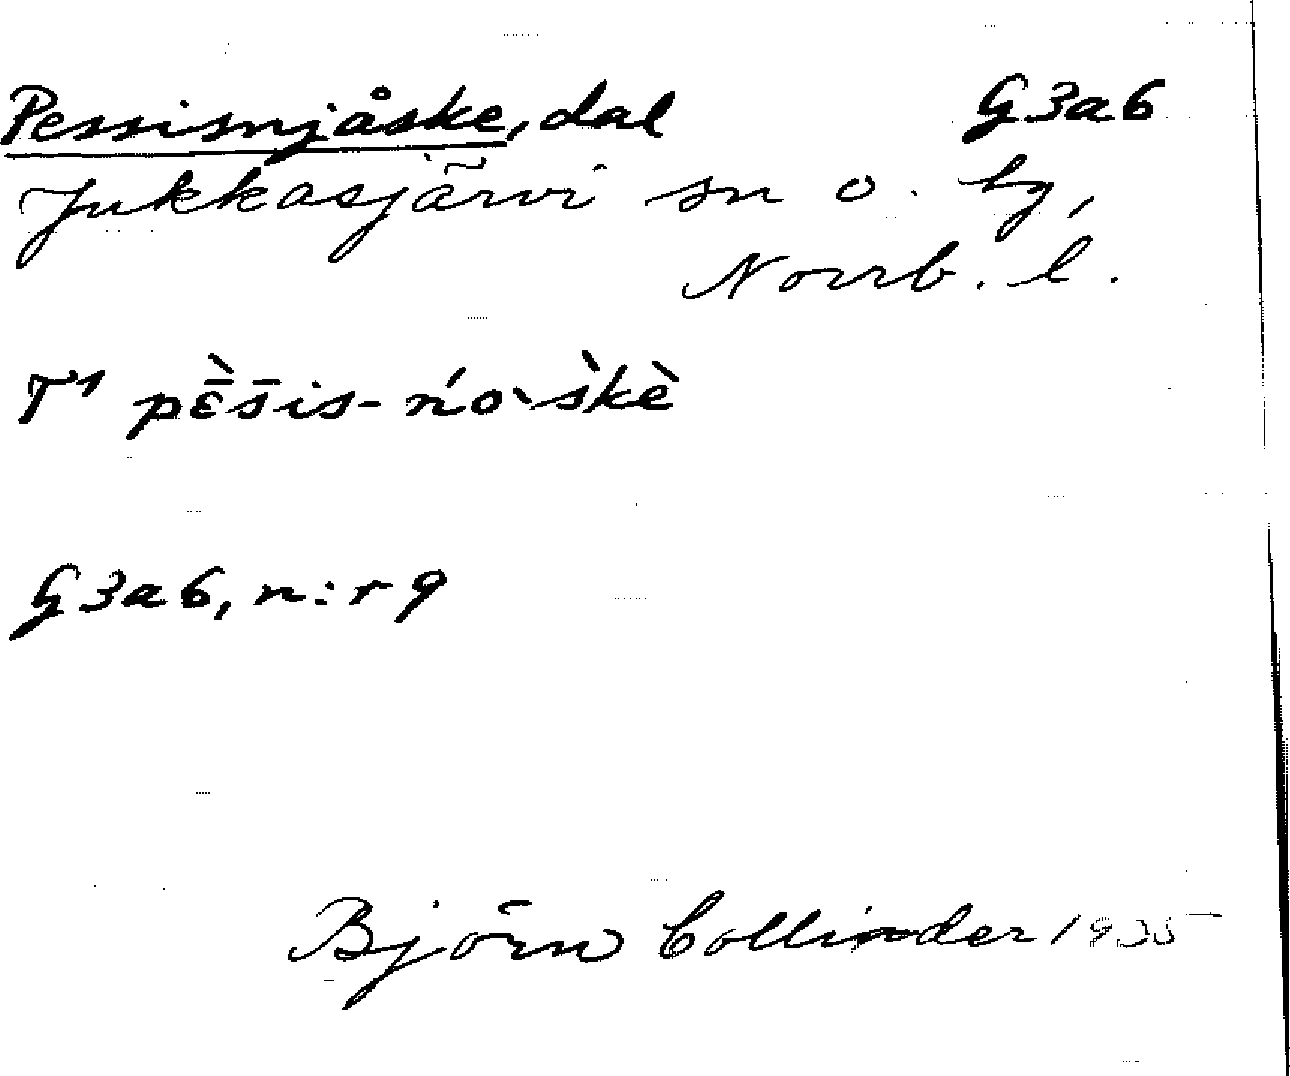 Pessisnjåske, dal G3a6
Jukkasjärvi sn o. hg,
Norrb. l.
T¹ pɛ̄̀s̄is-ńo`s̀kè
G3a6, n:r 9
Björn Collinder 1935